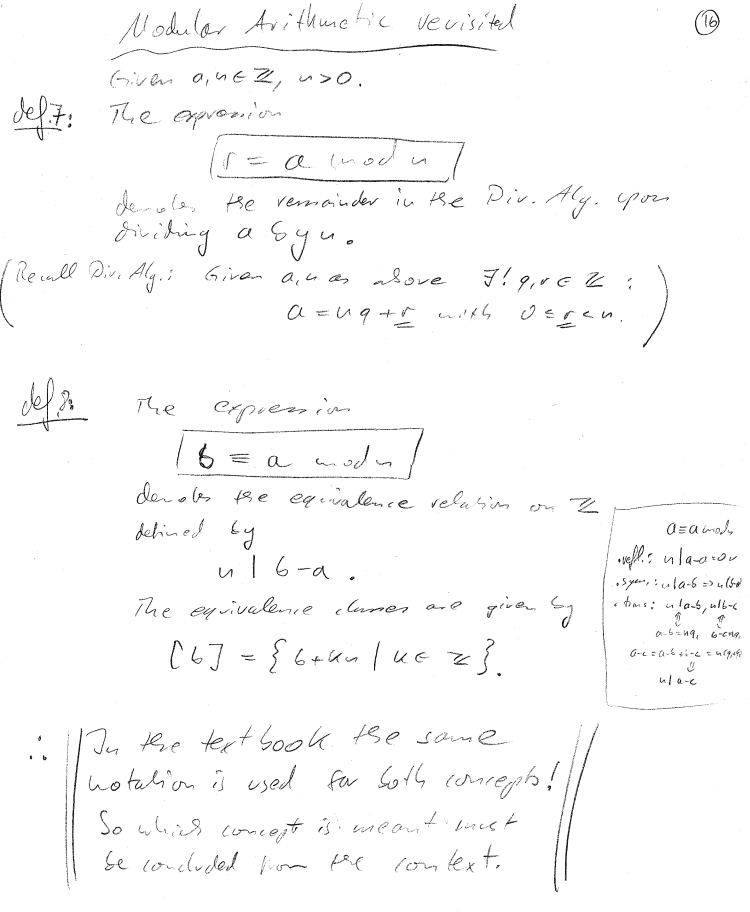 Modular Arithmetic revisited
16
Given a, n ∈ ℤ, n > 0.
def. 7: The expression
r = a mod n
denotes the remainder in the Div. Alg. upon
dividing a by n.
(Recall Div. Alg.: Given a, n as above ∃! q, r ∈ ℤ :
a = nq + r with 0 ≤ r < n.)
def. 8: The expression
b ≡ a mod n
denotes the equivalence relation on ℤ
defined by
n | b-a .
The equivalence classes are given by
[b] = {b + kn | k ∈ ℤ}.
a ≡ a mod n
• refl.: n | a-a = 0 ✓
• sym.: n | a-b => n | b-a
• trans: n | a-b, n | b-c
⇕ ⇕
a-b = nq,
a-c = a-b+b-c =
⇓
n | a-c
∴ In the textbook the same
notation is used for both concepts!
So which concept is meant must
be concluded from the context.